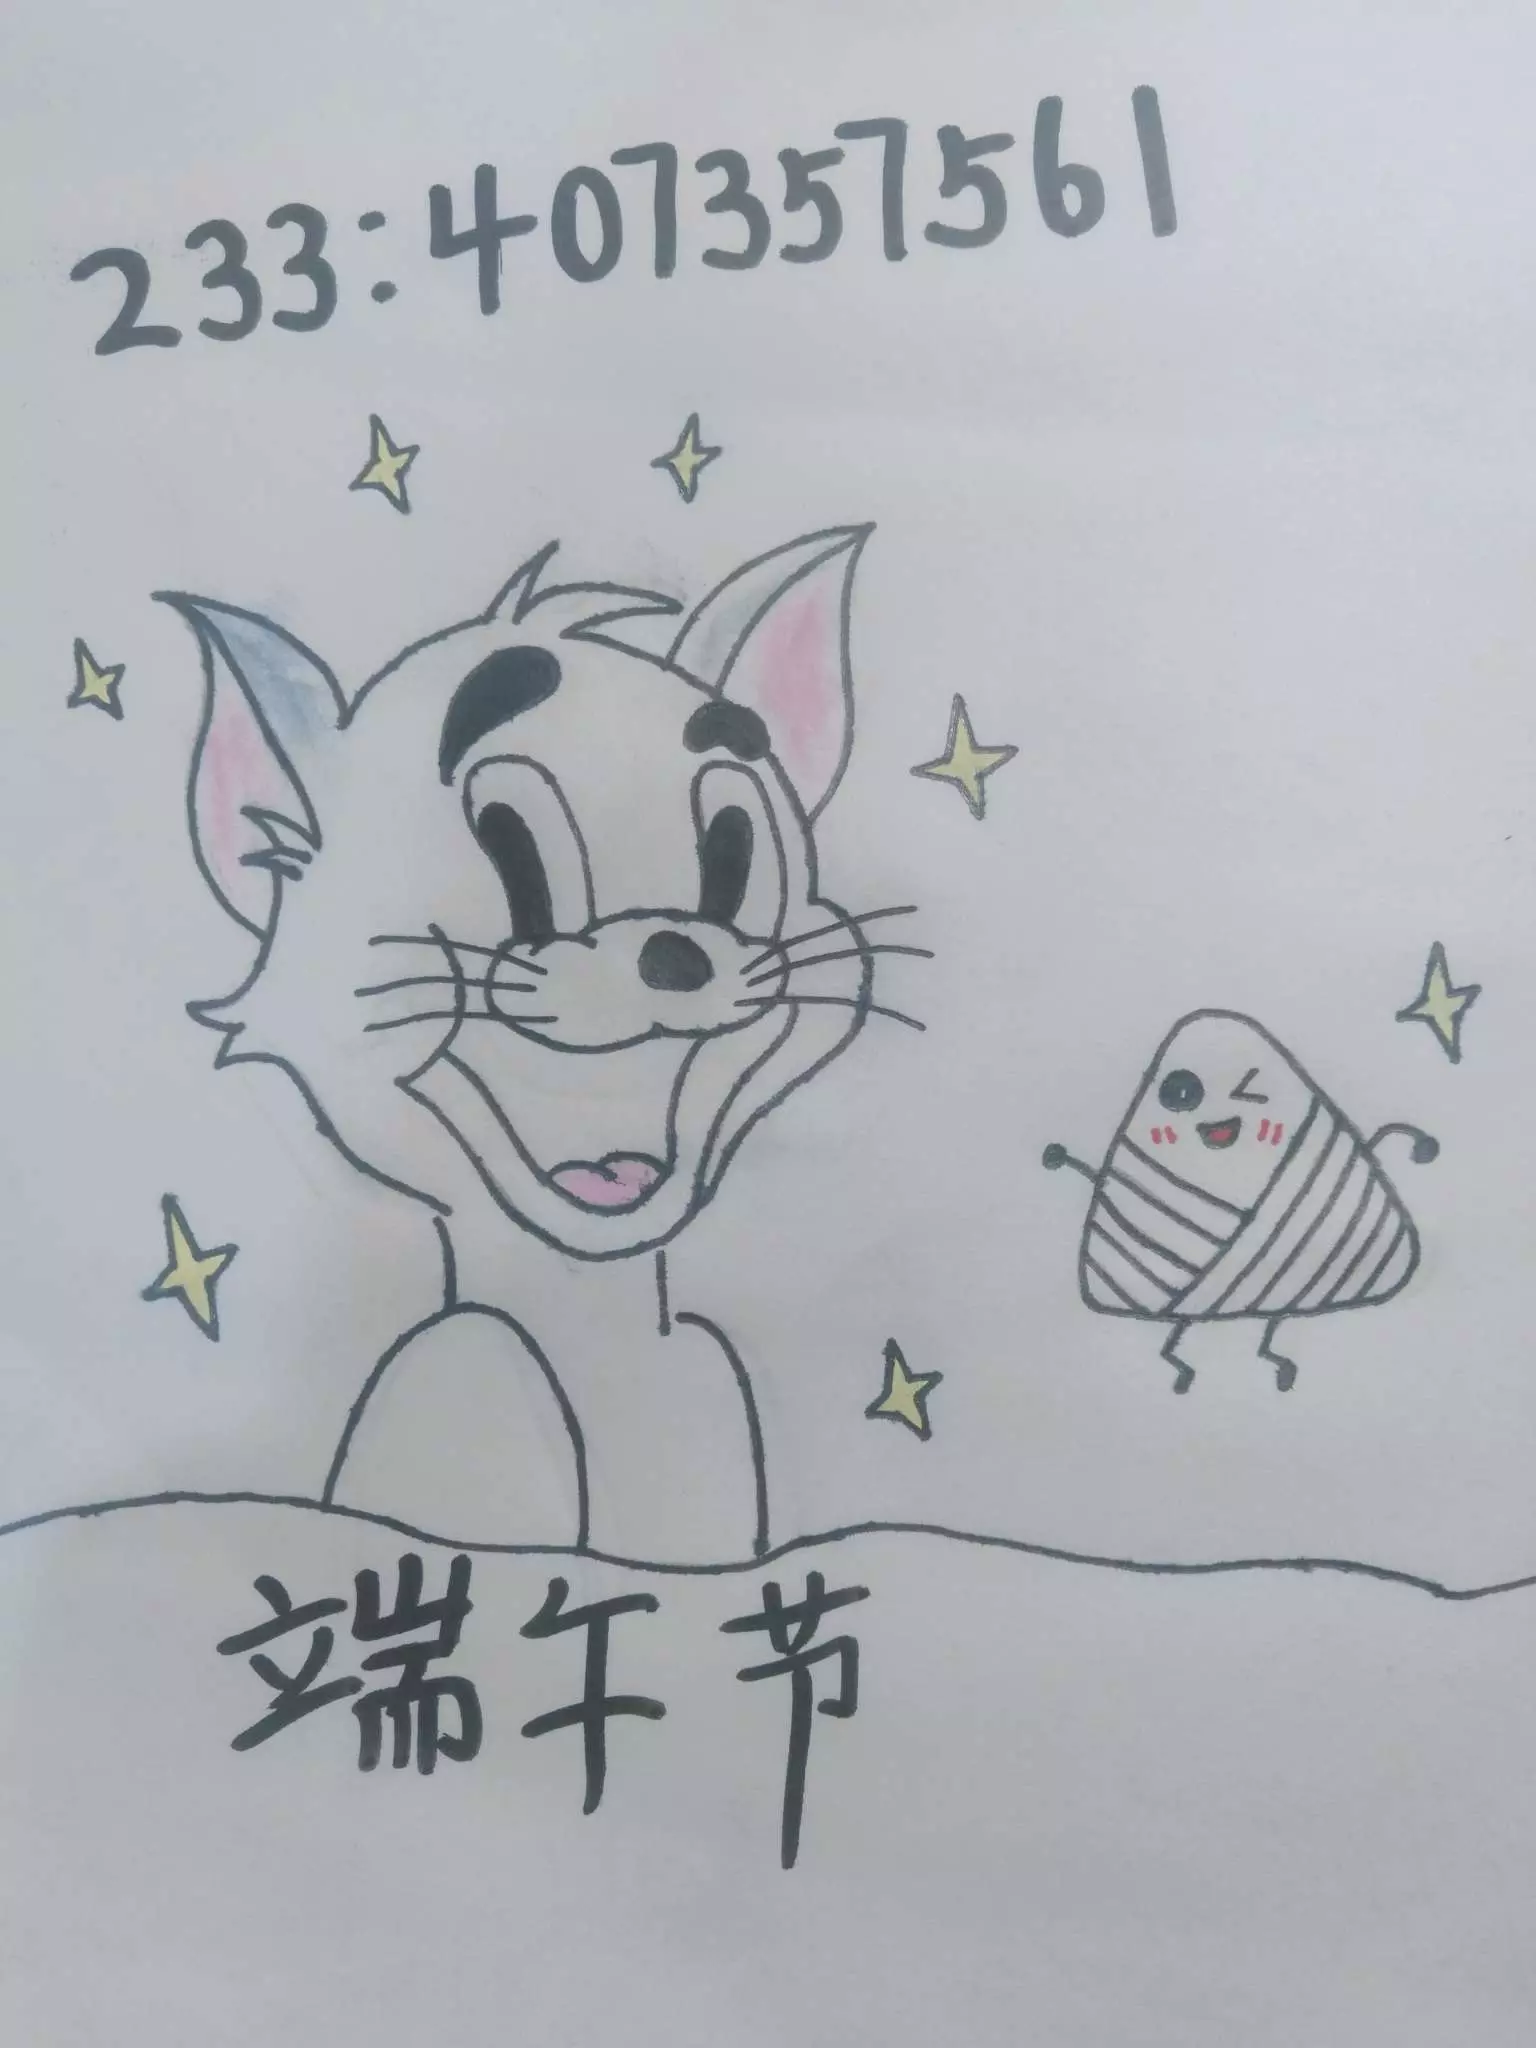 233:407357561
端午节